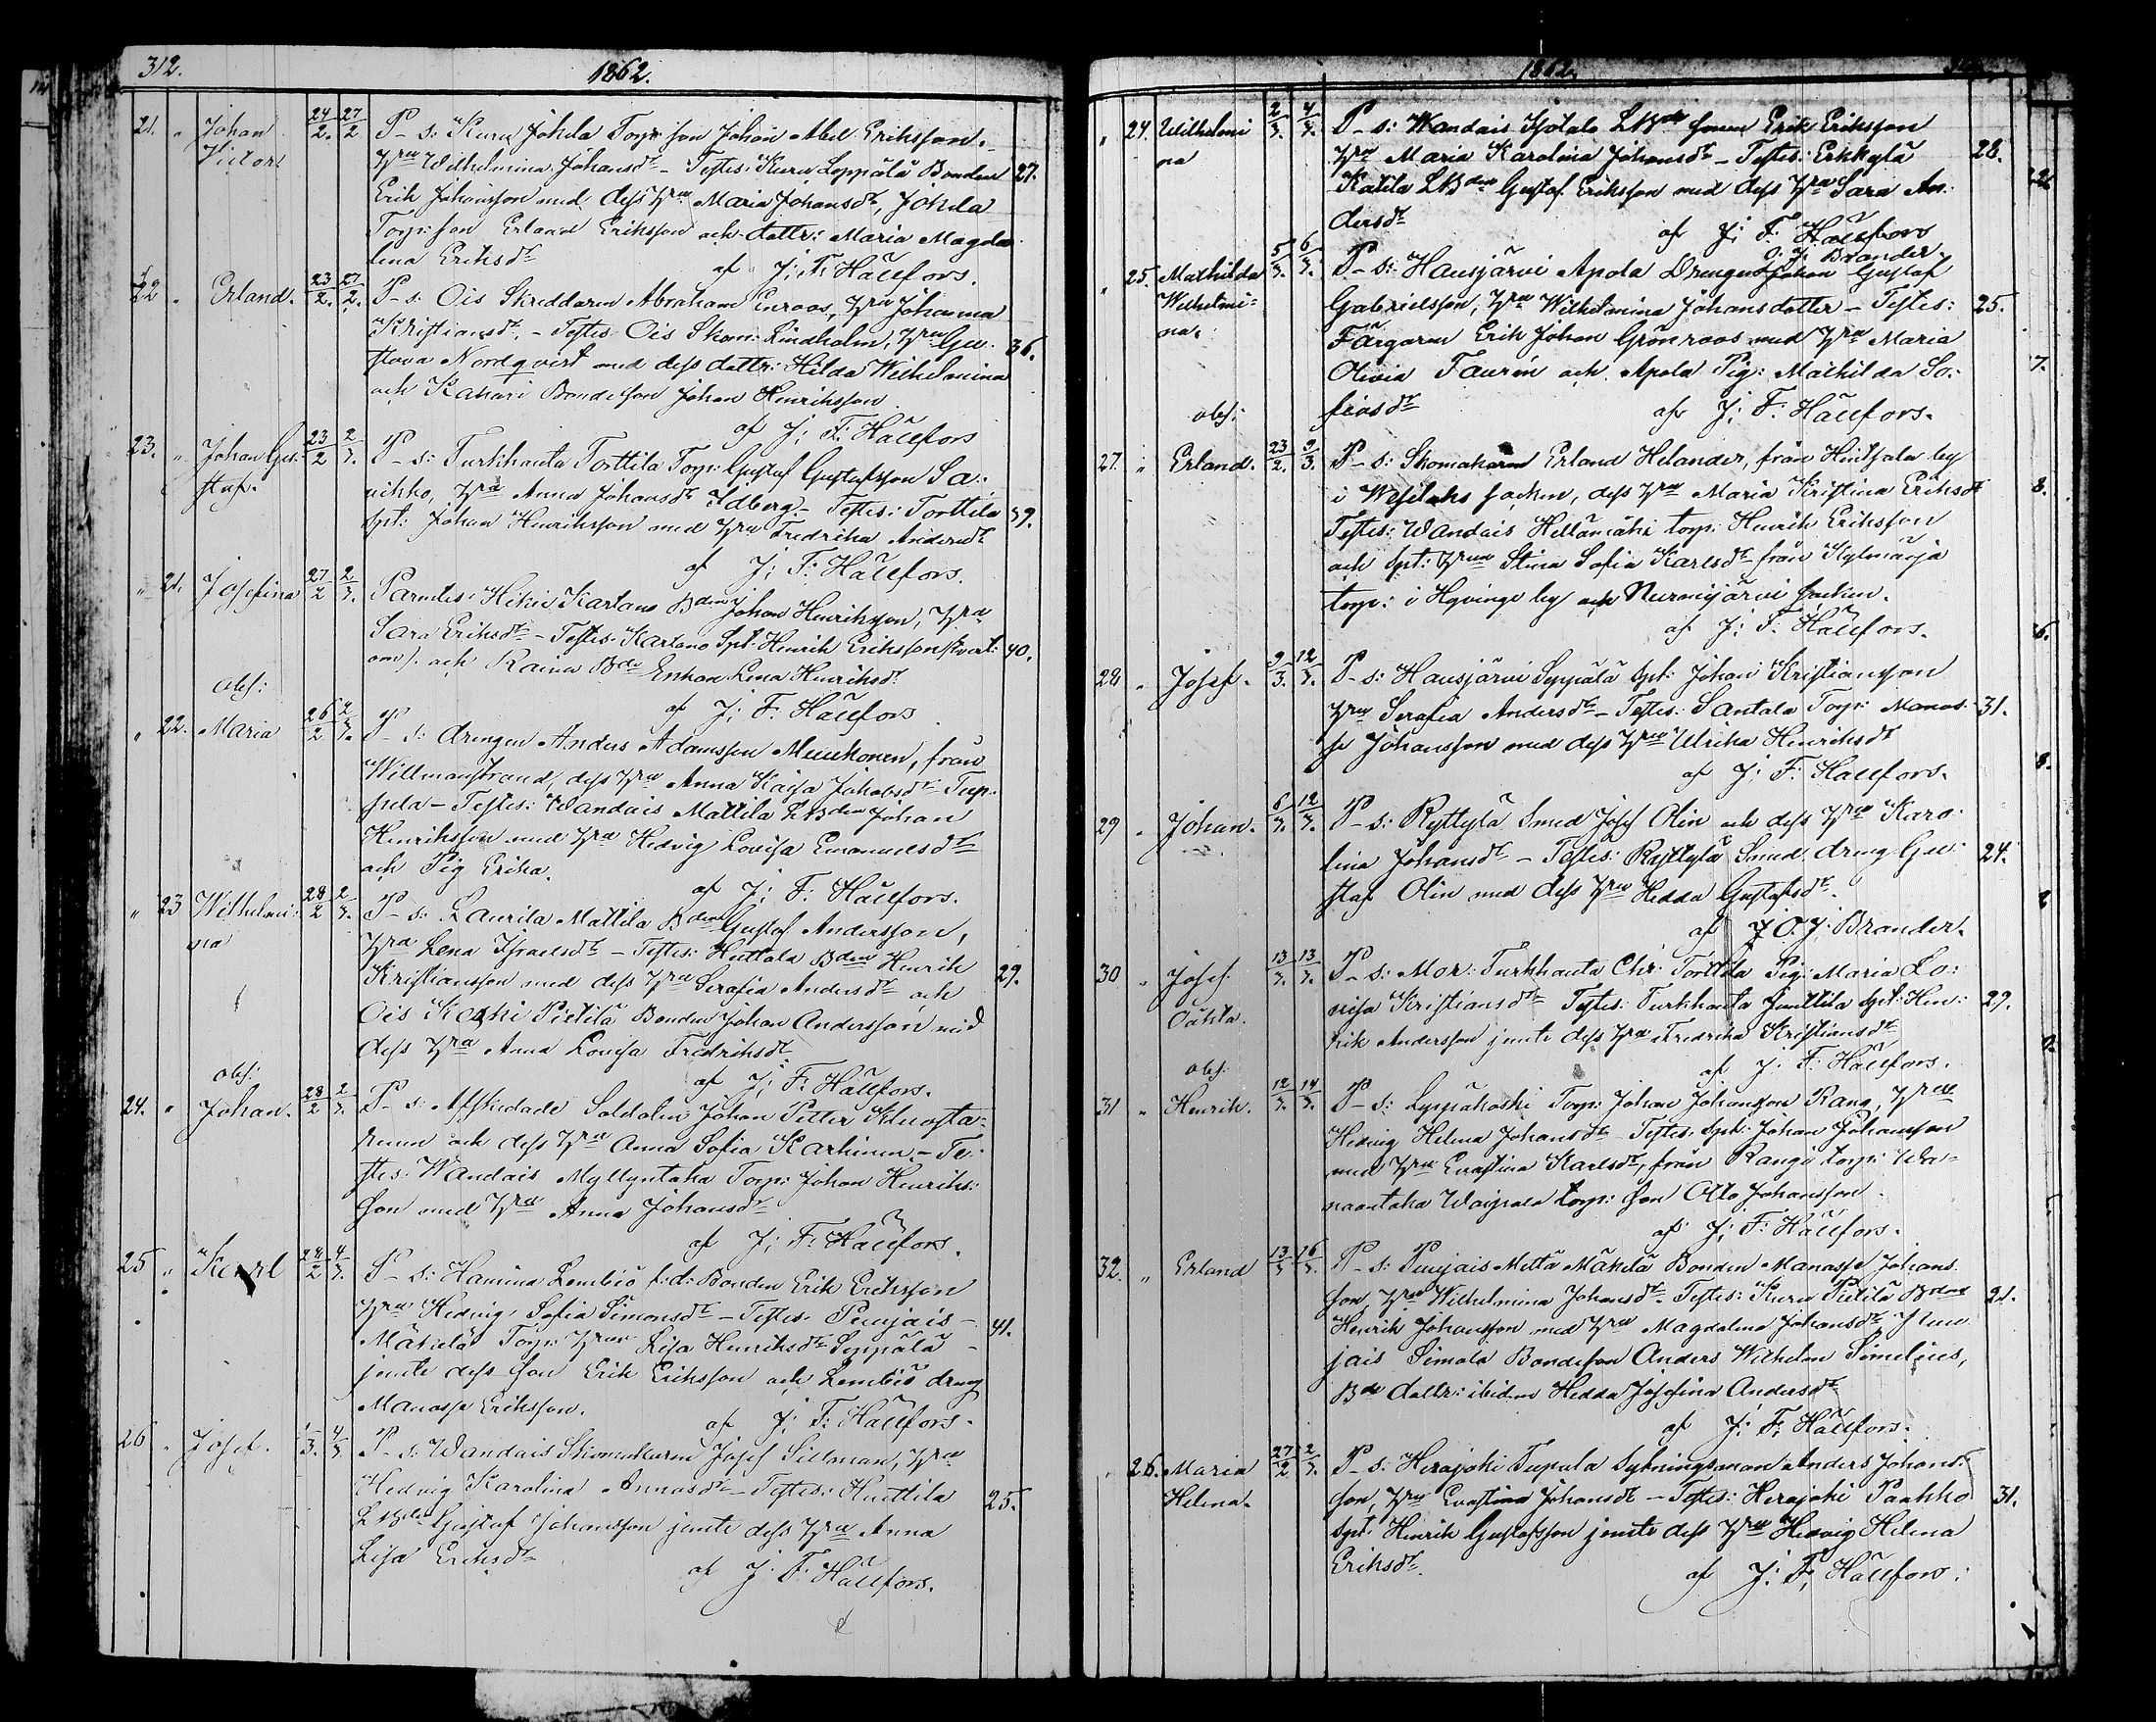 312.
1862.
21. " Johan 24/2. 27/2 P_s: Kuru Johela Torp: son Johan Abel Eriksson.
Victor Hru Wilhelmina Johansdr – Testes: Kuru Seppälä Bonden 27.
Erik Johansson med dess Hru Maria Johansdr, Johela
Torp: son Erland Eriksson och dottr: Maria Magda
lena Eriksdr af J: F: Hällfors.
22 " Erland. 23/2. 27/2. P_s: Ois Skreddaren Abraham Enroos, Hru Johanna
Kristiansdr, – Testes: Ois Skom: Lindholm, Hru Gu 36.
stava Nordqvist med dess dottr: Hilda Wilhelmina
och Kahari Bondeson Johan Henriksson
af J: F: Hällfors
23. " Johan Gu: 23/2 2/3. P_s: Turkhauta Torttila Torp: Gustaf Gustafsson Sa:
staf. rikko, Hru Anna Johansdr Idberg – Testes: Torttila 39.
Spt: Johan Henriksson med Hru Fredrika Andersdr
af J: F: Hällfors.
" 21. Josefina 27/2 2/3. Parentes: Hikiä Kartano Bden Johan Henriksson, Hru
Sara Eriksdr – Testes: Kartano Spt: Henrik Eriksson 40.
och Bde Enkan Lena Henriksdr
obs: af J: F: Hällfors
" 22. Maria 26/2 2/3. P_s: drengen Anders Adamsson Muukonen, från
Willmanstrand, dess Hru Anna Kaisa Jakobsdr
– Testes: Wandais Mattila LBden Johan
Henriksson med Hru Hedvig Lovisa Emanuelsdr
och Pig Erika.
af J: F: Hällfors.
" 23 Wilhelmi: 28/2 2/3. P_s: Laurila Mattila Bden Gustaf Andersson,
na Hru Lena Israelsdr – Testes: Huttala Bden Henrik
Kristiansson med dess Hru Serafia Andersdr och 29.
Ois Koski Pietilä Bonden Johan Andersson med
dess Hru Anna Lovisa Fredriksdr
obs: af J: F: Hällfors.
24. " Johan. 28/2 2/3. P_s: Afskedade Soldaten Johan Petter
och dess Hru Anna Sofia Karhinen – Te:
stes: Wandais Myllyntaka Torp: Johan Henriks:
son med Hru Anna Johansdr
af J: F: Hällfors.
25 " Karl 28/2 4/3. P_s: Hamina Lembiö f:d: Bonden Erik Eriksson
Hru Hedvig Sofia Simonsdr – Testes: Puujais –
Mäkelä Torp: Hrun Lisa Henriksdr Seppälä – 41.
jemte dess son Erik Eriksson och Lembiö dreng
Manasse Eriksson.
af J: F: Hällfors.
26 " Josef. 1/3. 4/3. P_s: Wandais Skomakaren Josef Sillman, Hru
Hedvig Karolina Annasdr – Testes: Huttila 25.
LBden Gustaf Johansson jemte dess Hru Anna
Lisa Eriksdr
af J: F: Hällfors.
1862.
" 24. Wilhelmi 2/3. 4/3. P_s: Wandais Isotalo LBde sonen Erik Eriksson
na Hru Maria Karolina Johansdr – Testes: Erkkylä 28.
Katila LBden Gustaf Eriksson med dess Hru Sara An:
dersdr
af J: F: Hällfors
O: J: Brander.
" 25. Mathilda 5/3. 6/3. P_s: Hausjärvi Apola Drengen Johan Gustaf
Wilhelmi= Gabrielsson, Hru Wilhelmina Johansdotter – Testes: 25.
na. Färgaren Erik Johan Grönroos med Hru Maria
Olivia Faurén och Apola Pig: Mathilda So:
obs: fiasdr af J: F: Hällfors.
27. " Erland. 23/2. 9/3. P_s: Skomakaren Erland Helander, från Hintsala by
i Wesilaks socken, dess Hru Maria Kristina Eriksdr
Testes: Wandais Hellämäki torp: Henrik Eriksson
och Spt: Hrun Stina Sofia Karlsdr från Kylmäoja
torp: i Hyvinge by och Nurmijärvi socken.
af J: F: Hällfors.
28 " Josef. 9/3. 12/3. P_s: Hausjärvi Seppälä Spt: Johan Kristiansson
Hru Serafia Andersdr – Testes: Santala Torp: Manas: 31.
se Johansson med dess Hru Ulrika Henriksdr
af J: F: Hällfors.
29 " Johan. 6/3. 12/3. P_s: Ryttylä Smed Josef Olin och dess Hru Karo
lina Johansdr – Testes: Ryttylä Smed. dreng Gu: 24.
staf Olin med dess Hru Hedda Gustafsdr.
af O. J: Brander.
30 " Josef 13/3. 13/3. P_s: Mor: Turkhauta Torttila Pig: Maria Lo:
Oäkta. visa Kristiansdr Testes: Turkhauta Juttila Spt: Hen: 29.
rik Andersson jemte dess Hru Fredrika Kristiansdr
obs: af J: F: Hällfors.
31 " Henrik. 12/3. 14/3. P_s: Lyypäkoski Torp: Johan Johansson Rang, Hru
Hedvig Helena Johansdr Testes: Spt: Johan Johansson
med Hru Evastina Karlsdr, från Rangö torp: Wa=
naantaka torp: son Otto Johansson.
af J: F: Hällfors.
32. " Erland 13/3 16/3. P_s: Puujais Mettä Mäkelä Bonden Manasse Johans
son, Hru Wilhelmina Johansdr. Testes: Kuru Pietilä Bden 21.
Henrik Johansson med Hru Magdalena Johansdr Puu
jais Simola Bondeson Anders Wilhelm Simelius,
Bde dottr: ibidem Hedda Josefina Andersdr
af J: F: Hällfors.
" 26. Maria 27/2 2/3. P_s: Herajoki Tupala Sytningsman Anders Johans:
Helena. son, Hru Evastina Johansdr – Testes: Herajoki Paakko 31.
Spt: Henrik Gustafsson jemte dess Hru Hedvig Helena
Eriksdr.
af J: F: Hällfors.